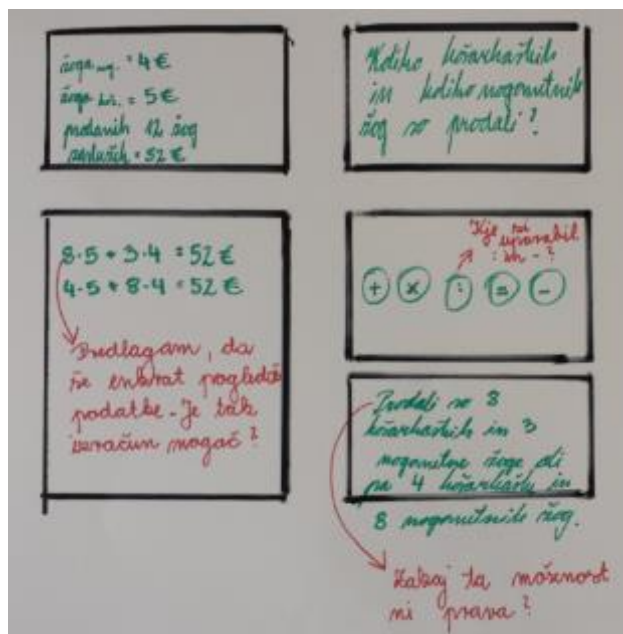 žoga nog. = 4 €
žoga koš. = 5 €
prodanih 12 žog
zaslužek = 52 €
Koliko košarkaških
in koliko nogometnih
žog so prodali?
8·5 + 3·4 = 52 €
4·5 + 8·4 = 52 €
Predlagam, da
še enkrat pogledaš
podatke. Je tak
izračun mogoč?
Kje si
uporabil
: in -?
+ × : = -
Prodali so 8
košarkaških in 3
nogometne žoge ali
pa 4 košarkaške in
8 nogometnih žog.
Zakaj ta možnost
ni prava?